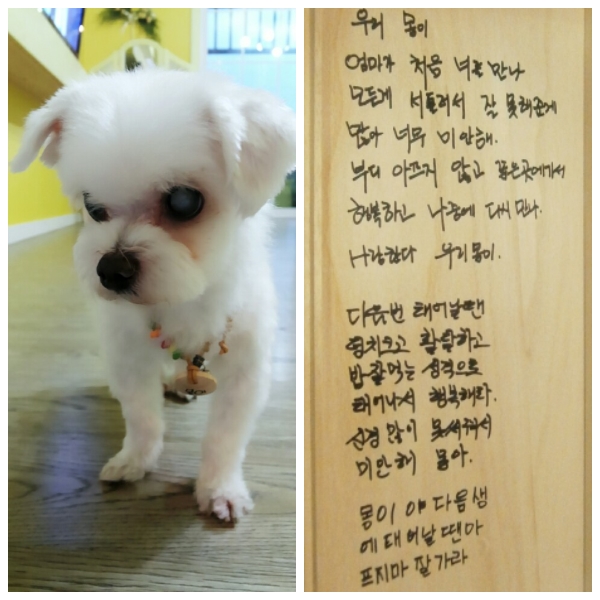 우리 몽이
엄마가 처음 너를 만나
모든게 서툴러서 잘 못해준게
많아 너무 미안해.
부디 아프지 않고 좋은곳에가서
행복하고 나중에 다시 만나.
사랑한다 우리몽이.
다음번 태어날땐
덩치크고 활발하고
밥잘먹는 성격으로
태어나서 행복해라.
신경 많이 못써줘서
미안해 몽아.
몽이 야 다음생
에 태어날땐아
프지마 잘가라